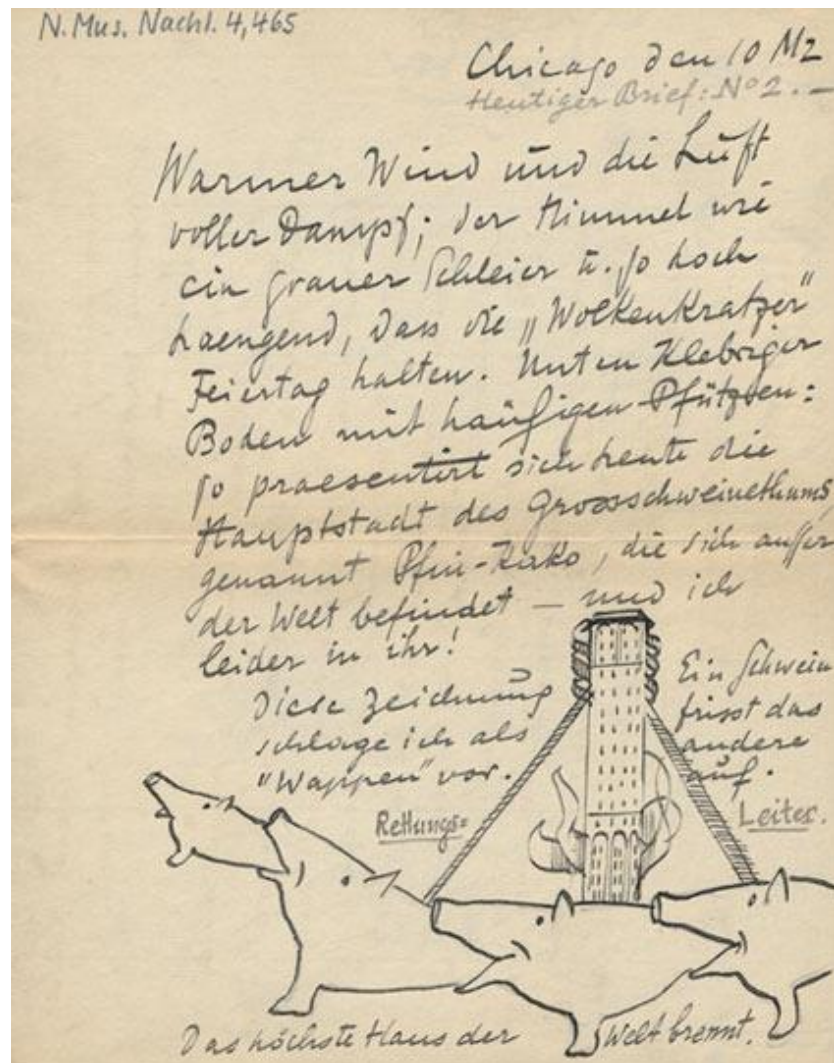 N. Mus. Nachl. 4,465
Chicago den 10 Mz
Heutiger Brief: No 2. —
Warmer Wind und die Luft
voller Dampf; der Himmel wie
ein grauer Schleier u. so hoch
haengend, dass die „Wolkenkratzer“
Feiertag halten. Unten Klebriger
Boden mit haüfigen Pfützen:
so praesentirt sich heute die
Hauptstadt des Grossschweinethums,
genannt Pfui-Kako, die sich ausser
der Welt befindet — und ich
leider in ihr!
Diese Zeichnung
schlage ich als
"Wappen" vor.
Ein Schwein
frisst das
andere
auf.
Rettungs=
Leiter.
Das höchste Haus der Welt brennt.